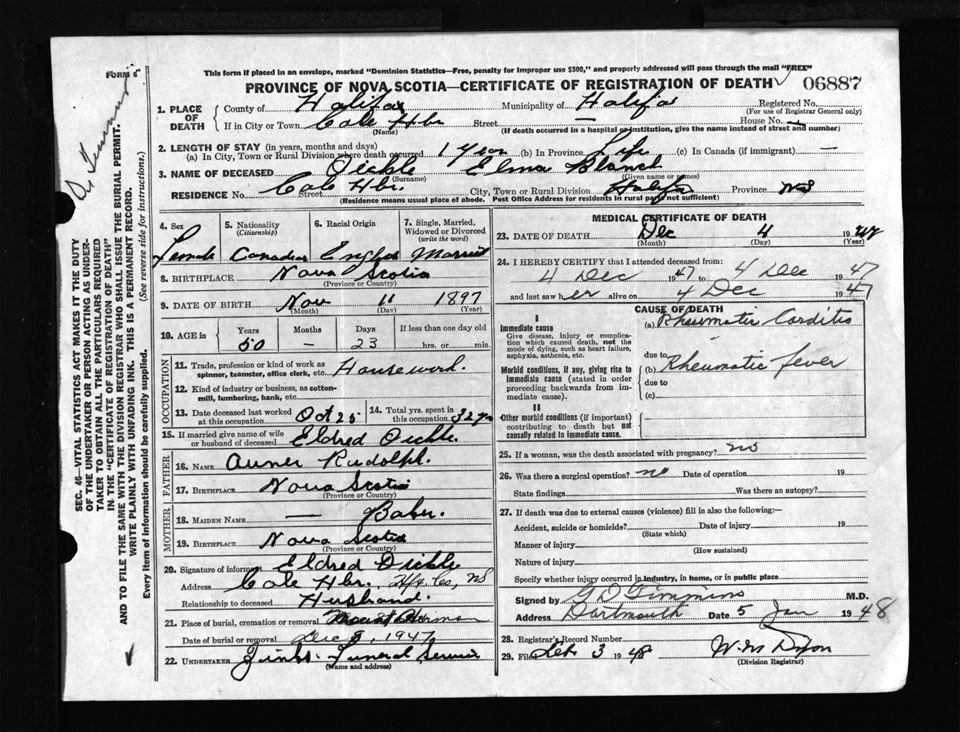 FORM 6
Dr Timmins
This form if placed in an envelope, marked "Dominion Statistics—Free, penalty for improper use $300," and properly addressed will pass through the mail "FREE"
PROVINCE OF NOVA SCOTIA—CERTIFICATE OF REGISTRATION OF DEATH 06887
1. PLACE OF DEATH County of Halifax Municipality of Halifax Registered No.
(For use of Registrar General only)
If in City or Town Cole Hbr Street — House No. —
(Name) (If death occurred in a hospital or institution, give the name instead of street and number)
2. LENGTH OF STAY (in years, months and days)
(a) In City, Town or Rural Division where death occurred 1 Year (b) In Province Life (c) In Canada (if immigrant) —
3. NAME OF DECEASED Elma Blanch
(Surname) (Given name or names)
RESIDENCE No. Cole Hbr. Street City, Town or Rural Division Halifax Province NS
(Residence means usual place of abode. Post Office Address for residents in rural parts not sufficient)
4. Sex 5. Nationality (Citizenship) 6. Racial Origin 7. Single, Married, Widowed or Divorced (write the word)
Female Canadian English Married
8. BIRTHPLACE Nova Scotia
(Province or Country)
9. DATE OF BIRTH Nov 11 1897
(Month) (Day) (Year)
10. AGE in Years Months Days If less than one day old
50 — 23 hrs. or min.
OCCUPATION
11. Trade, profession or kind of work as spinner, teamster, office clerk, etc. Housework.
12. Kind of industry or business, as cotton-mill, lumbering, bank, etc.
13. Date deceased last worked at this occupation Oct 25 14. Total yrs. spent in this occupation 32 yrs
15. If married give name of wife or husband of deceased Eldred
FATHER
16. NAME Rudolph.
17. BIRTHPLACE Nova Scotia
(Province or Country)
MOTHER
18. MAIDEN NAME — Baker.
19. BIRTHPLACE Nova Scotia
(Province or Country)
20. Signature of informant Eldred
Address Cole Hbr. Hfx. Co, NS
Relationship to deceased Husband.
21. Place of burial, cremation or removal Mount Hermon
Date of burial or removal Dec 1947
22. UNDERTAKER Funeral Service
(Name and address)
MEDICAL CERTIFICATE OF DEATH
23. DATE OF DEATH Dec 4 1947
(Month) (Day) (Year)
24. I HEREBY CERTIFY that I attended deceased from:
4 Dec 1947 to 4 Dec 1947
and last saw her alive on 4 Dec 1947
CAUSE OF DEATH
I
Immediate cause
Give disease, injury or complication which caused death, not the mode of dying, such as heart failure, asphyxia, asthenia, etc.
(a) Rheumatic Carditis
due to
Morbid conditions, if any, giving rise to immediate cause (stated in order proceeding backwards from immediate cause).
(b) Rheumatic fever
due to
(c)
II
Other morbid conditions (if important) contributing to death but not causally related to immediate cause.
25. If a woman, was the death associated with pregnancy? no
26. Was there a surgical operation? no Date of operation 19
State findings Was there an autopsy?
27. If death was due to external causes (violence) fill in also the following:—
Accident, suicide or homicide? Date of injury 19
(State which)
Manner of injury
(How sustained)
Nature of injury
Specify whether injury occurred in industry, in home, or in public place
Signed by G D Timmins M.D.
Address Dartmouth Date 5 Jan 1948
28. Registrar's Record Number
29. Filed Feb 3 1948 W. M Dixon
(Division Registrar)
SEC. 46—VITAL STATISTICS ACT MAKES IT THE DUTY
OF THE UNDERTAKER OR PERSON ACTING AS UNDER-
TAKER TO OBTAIN ALL THE PARTICULARS REQUIRED
IN THE "CERTIFICATE OF REGISTRATION OF DEATH"
AND TO FILE THE SAME WITH THE DIVISION REGISTRAR WHO SHALL ISSUE THE BURIAL PERMIT.
WRITE PLAINLY WITH UNFADING INK. THIS IS A PERMANENT RECORD.
Every item of information should be carefully supplied. (See reverse side for instructions.)